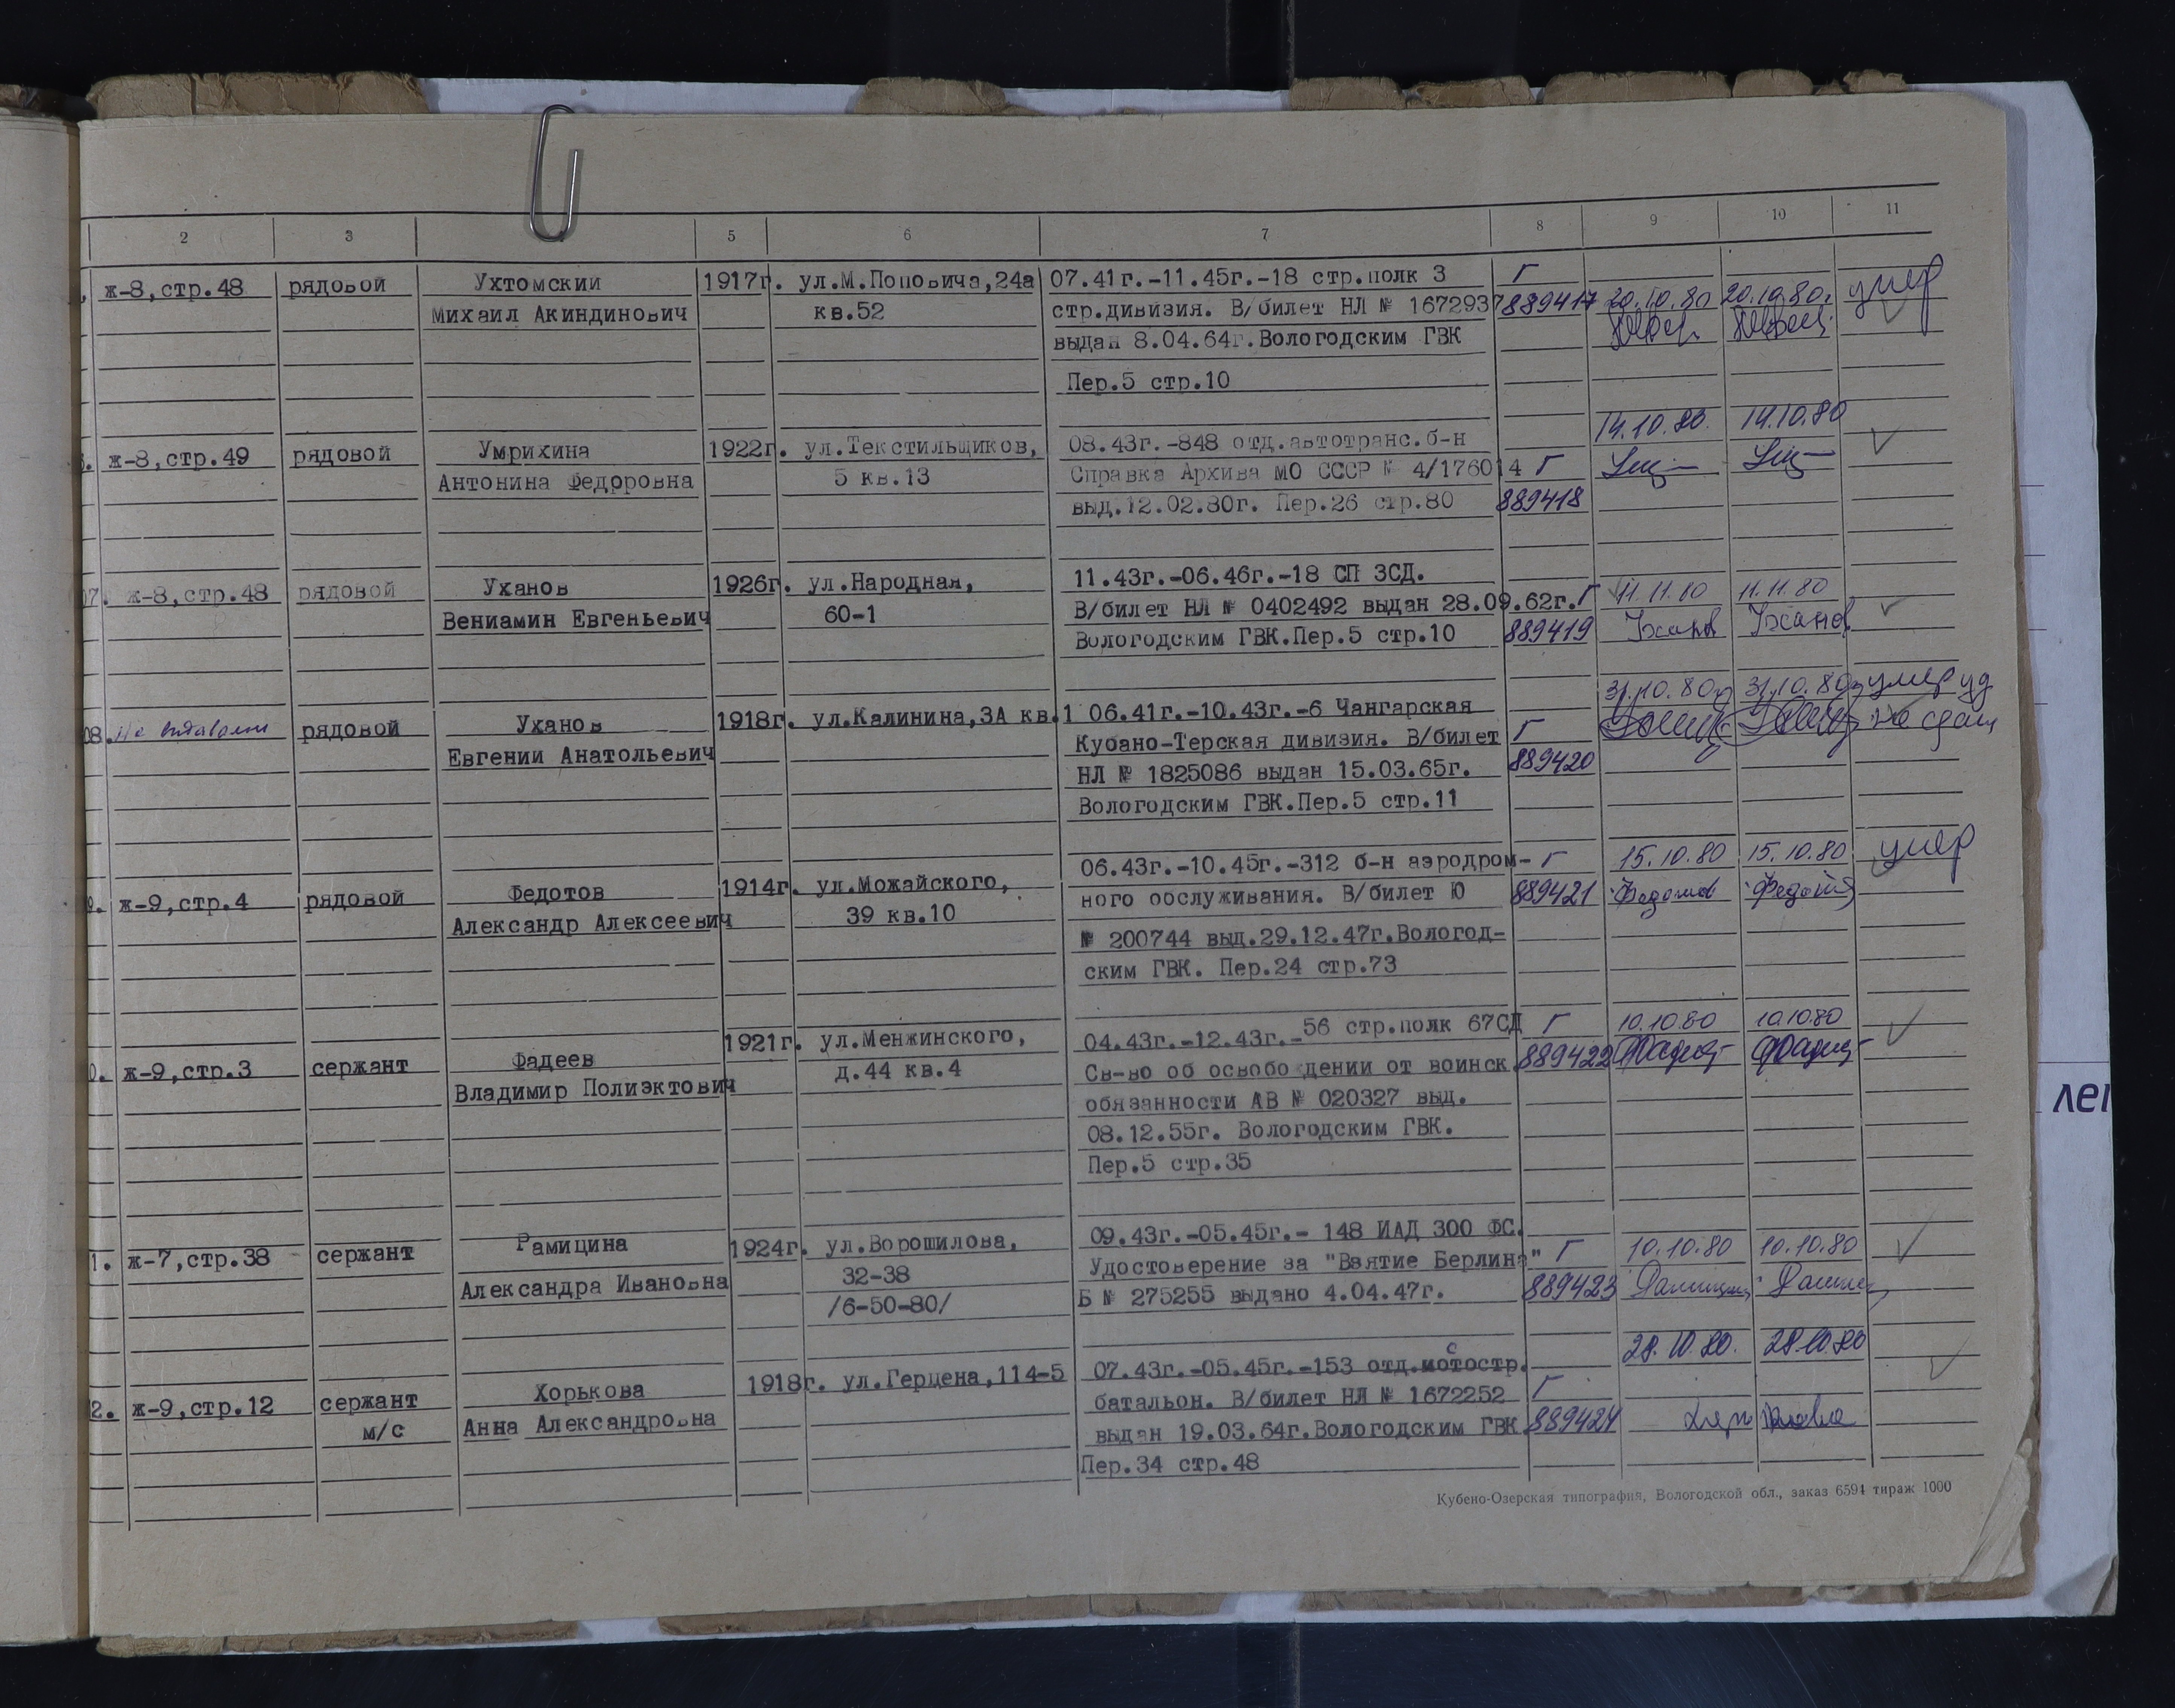 2 3 5 6 7 8 9 10 11
ж-8,стр.48 рядовой Ухтомский 1917г. ул.М.Поповича,24а 07.41г.-11.45г.-18 стр.полк 3 Г умер
Михаил Акиндинович кв.52 стр.дивизия. В/билет НЛ № 1672937 889417 20.10.80 20.10.80.
выдан 8.04.64г.Вологодским ГВК
Пер.5 стр.10
14.10.80. 14.10.80
ж-8,стр.49 рядовой Умрихина 1922г. ул.Текстильщиков, 08.43г.-848 отд.автотранс.б-н
Антонина Федоровна 5 кв.13 Справка Архива МО СССР № 4/176014 Г
выд.12.02.80г. Пер.26 стр.80 889418
7. ж-8,стр.48 рядовой Уханов 1926г. ул.Народная, 11.43г.-06.46г.-18 СП 3СД. 11.11.80 11.11.80
Вениамин Евгеньевич 60-1 В/билет НЛ № 0402492 выдан 28.09.62г. Г Уханов Уханов
Вологодским ГВК.Пер.5 стр.10 889419
31.10.80г 31.10.80г умер уд
08. рядовой Уханов 1918г. ул.Калинина,3А кв.1 06.41г.-10.43г.-6 Чангарская Г не сдан
Евгений Анатольевич Кубано-Терская дивизия. В/билет 889420
НЛ № 1825086 выдан 15.03.65г.
Вологодским ГВК.Пер.5 стр.11
06.43г.-10.45г.-312 б-н аэродром- Г 15.10.80 15.10.80 умер
9. ж-9,стр.4 рядовой Федотов 1914г. ул.Можайского, ного обслуживания. В/билет Ю 889421 Федотов Федотов
Александр Алексеевич 39 кв.10 № 200744 выд.29.12.47г.Вологод-
ским ГВК. Пер.24 стр.73
0. ж-9,стр.3 сержант Фадеев 1921г. ул.Менжинского, 04.43г.-12.43г.-56 стр.полк 67СД Г 10.10.80 10.10.80
Владимир Полиэктович д.44 кв.4 Св-во об освобо дении от воинск. 889422
обязанности АВ № 020327 выд.
08.12.55г. Вологодским ГВК.
Пер.5 стр.35
1. ж-7,стр.38 сержант Рамицина 1924г. ул.Ворошилова, 09.43г.-05.45г.- 148 ИАД 300 ФС.
Александра Ивановна 32-38 Удостоверение за "Взятие Берлина" Г 10.10.80 10.10.80
/6-50-80/ Б № 275255 выдано 4.04.47г. 889423
28.10.80. 28.10.80
2. ж-9,стр.12 сержант Хорькова 1918г. ул.Герцена,114-5 07.43г.-05.45г.-153 отд.мотостр. Г
м/с Анна Александровна батальон. В/билет НЛ № 1672252 889424
выдан 19.03.64г.Вологодским ГВК
Пер.34 стр.48
Кубено-Озерская типография, Вологодской обл., заказ 6594 тираж 1000